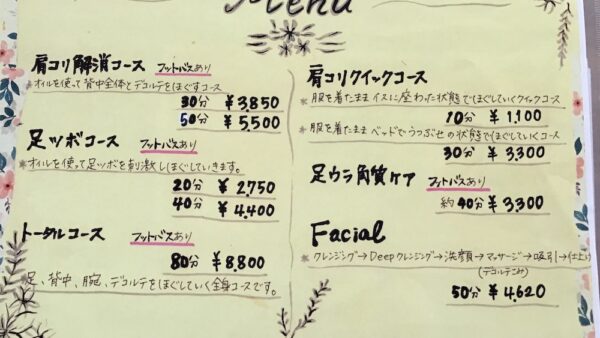 Menu
肩コリ解消コース フットバスあり
*オイルを使って背中全体とデコルテをほぐすコース
30分 ¥3,850
50分 ¥5,500
足ツボコース フットバスあり
*オイルを使って足ツボを刺激しほぐしていきます。
20分 ¥2,750
40分 ¥4,400
トータルコース フットバスあり
80分 ¥8,800
足、背中、腕、デコルテをほぐしていく全身コースです。
肩コリクイックコース
*服を着たままイスに座わった状態でほぐしていくクイックコース
10分 ¥1,100
*服を着たままベッドでうつぶせの状態でほぐしていくコース
30分 ¥3,300
足ウラ角質ケア フットバスあり
約40分 ¥3,300
Facial
*クレンジング→Deepクレンジング→洗顔→マッサージ→吸引→仕上げ
(デコルテ込み)
50分 ¥4,620